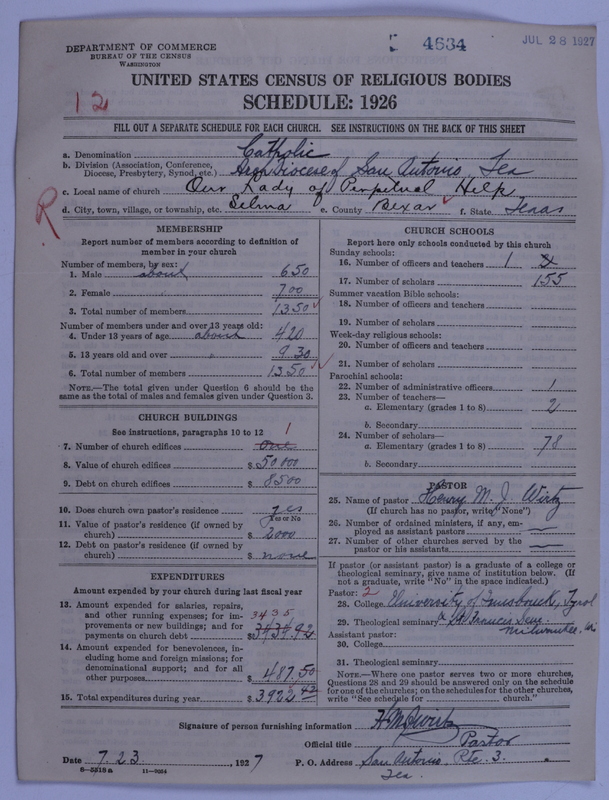 4634
JUL 28 1927
DEPARTMENT OF COMMERCE
BUREAU OF THE CENSUS
WASHINGTON
12
UNITED STATES CENSUS OF RELIGIOUS BODIES
SCHEDULE: 1926
FILL OUT A SEPARATE SCHEDULE FOR EACH CHURCH. SEE INSTRUCTIONS ON THE BACK OF THIS SHEET
a. Denomination Catholic
b. Division (Association, Conference, Diocese, Presbytery, Synod, etc.) Archdiocese of San Antonio, Tex
c. Local name of church Our Lady of Perpetual Help
R
d. City, town, village, or township, etc. Selma e. County Bexar f. State Texas
MEMBERSHIP
Report number of members according to definition of member in your church
Number of members, by sex:
1. Male about 650
2. Female 700
3. Total number of members 1350
Number of members under and over 13 years old:
4. Under 13 years of age about 420
5. 13 years old and over " 930
6. Total number of members 1350
NOTE.—The total given under Question 6 should be the same as the total of males and females given under Question 3.
CHURCH BUILDINGS
See instructions, paragraphs 10 to 12
1
7. Number of church edifices One
8. Value of church edifices $50000
9. Debt on church edifices $8500
10. Does church own pastor's residence yes
Yes or No
11. Value of pastor's residence (if owned by church) $2000
12. Debt on pastor's residence (if owned by church) $none
EXPENDITURES
Amount expended by your church during last fiscal year
13. Amount expended for salaries, repairs, and other running expenses; for improvements or new buildings; and for payments on church debt $3434.92
3435
14. Amount expended for benevolences, including home and foreign missions; for denominational support; and for all other purposes $487.50
15. Total expenditures during year $3922.42
CHURCH SCHOOLS
Report here only schools conducted by this church
Sunday schools:
16. Number of officers and teachers 1
17. Number of scholars 155
Summer vacation Bible schools:
18. Number of officers and teachers
19. Number of scholars
Week-day religious schools:
20. Number of officers and teachers
21. Number of scholars
Parochial schools:
22. Number of administrative officers 1
23. Number of teachers—
a. Elementary (grades 1 to 8) 2
b. Secondary
24. Number of scholars—
a. Elementary (grades 1 to 8) 78
b. Secondary
PASTOR
25. Name of pastor Henry M. J. Wirtz
(If church has no pastor, write "None")
26. Number of ordained ministers, if any, employed as assistant pastors —
27. Number of other churches served by the pastor or his assistants —
If pastor (or assistant pastor) is a graduate of a college or theological seminary, give name of institution below. (If not a graduate, write "No" in the space indicated.)
Pastor: 2
28. College University of Innsbruck, Tyrol
29. Theological seminary St Francis Sem
Milwaukee, Wi
Assistant pastor:
30. College
31. Theological seminary
NOTE.—Where one pastor serves two or more churches, Questions 28 and 29 should be answered only on the schedule for one of the churches; on the schedules for the other churches, write "See schedule for church."
Signature of person furnishing information H M J Wirtz
Official title Pastor
Date 7.23, 1927 P. O. Address San Antonio Rte. 3.
Tex.
6—5318a 11—9034